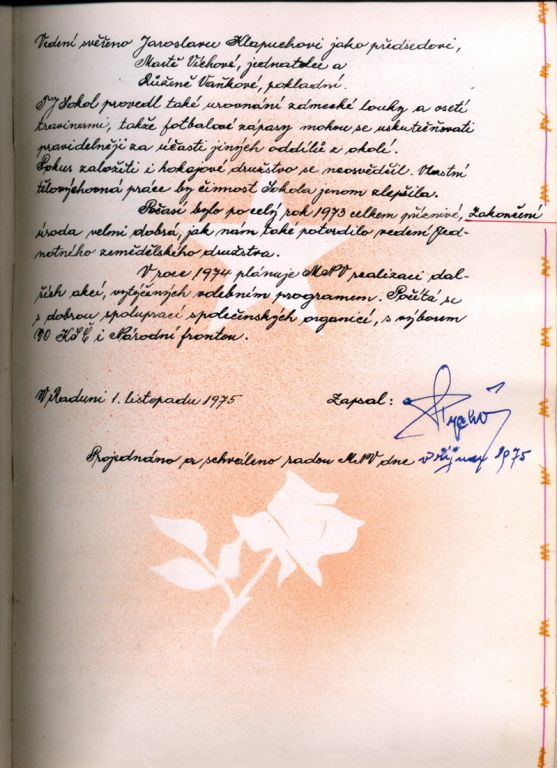 Vedení svěřeno Jaroslavu Klapuchovi jako předsedovi,
Martě Víchové, jednatelce a
Růženě Vaňkové, pokladní.
TJ Sokol provedl také urovnání zámecké louky a osetí
travinami, takže fotbalové zápasy mohou se uskutečňovati
pravidelněji za účasti jiných oddílů z okolí.
Pokus založiti i hokejové družstvo se neosvědčil. Vlastní
tělovýchovná práce by činnost Sokola jenom zlepšila.
Počasí bylo po celý rok 1973 celkem příznivé, Zakončení
úroda velmi dobrá, jak nám také potvrdilo vedení Jed-
notného zemědělského družstva.
V roce 1974 plánuje MNV realizaci dal-
ších akcí, vytýčených volebním programem. Počítá se
s dobrou spoluprací společenských organicí, s výborem
VO KSČ i Národní frontou.
V Raduni 1. listopadu 1975 Zapsal:
Projednáno a schváleno radou MNV dne v říjnu 1975